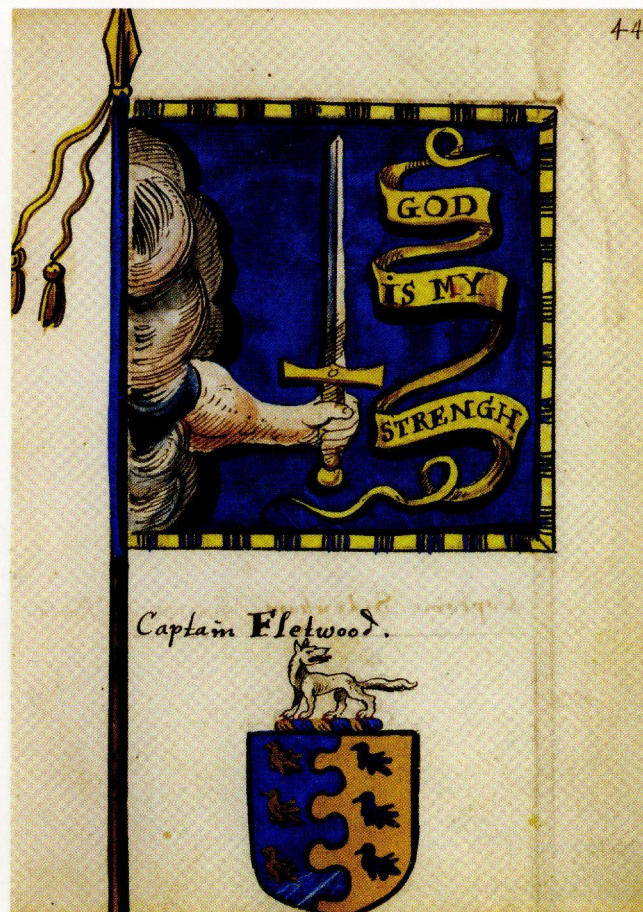 44
GOD
iS MY
STRENGH.
Captain Fletwood.